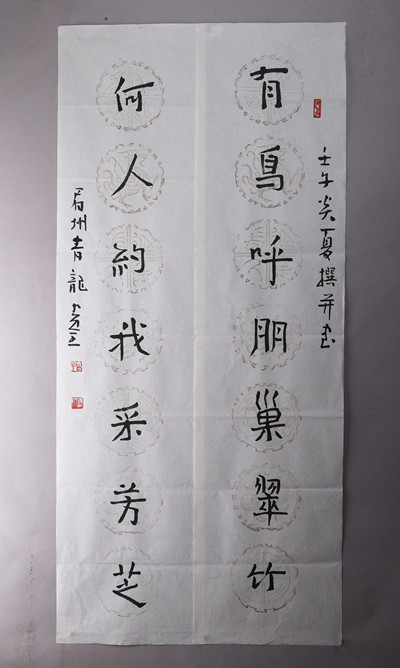 壬午炎夏撰并书
有鸟呼朋巢翠竹
何人約我采芳芝
眉州青龍